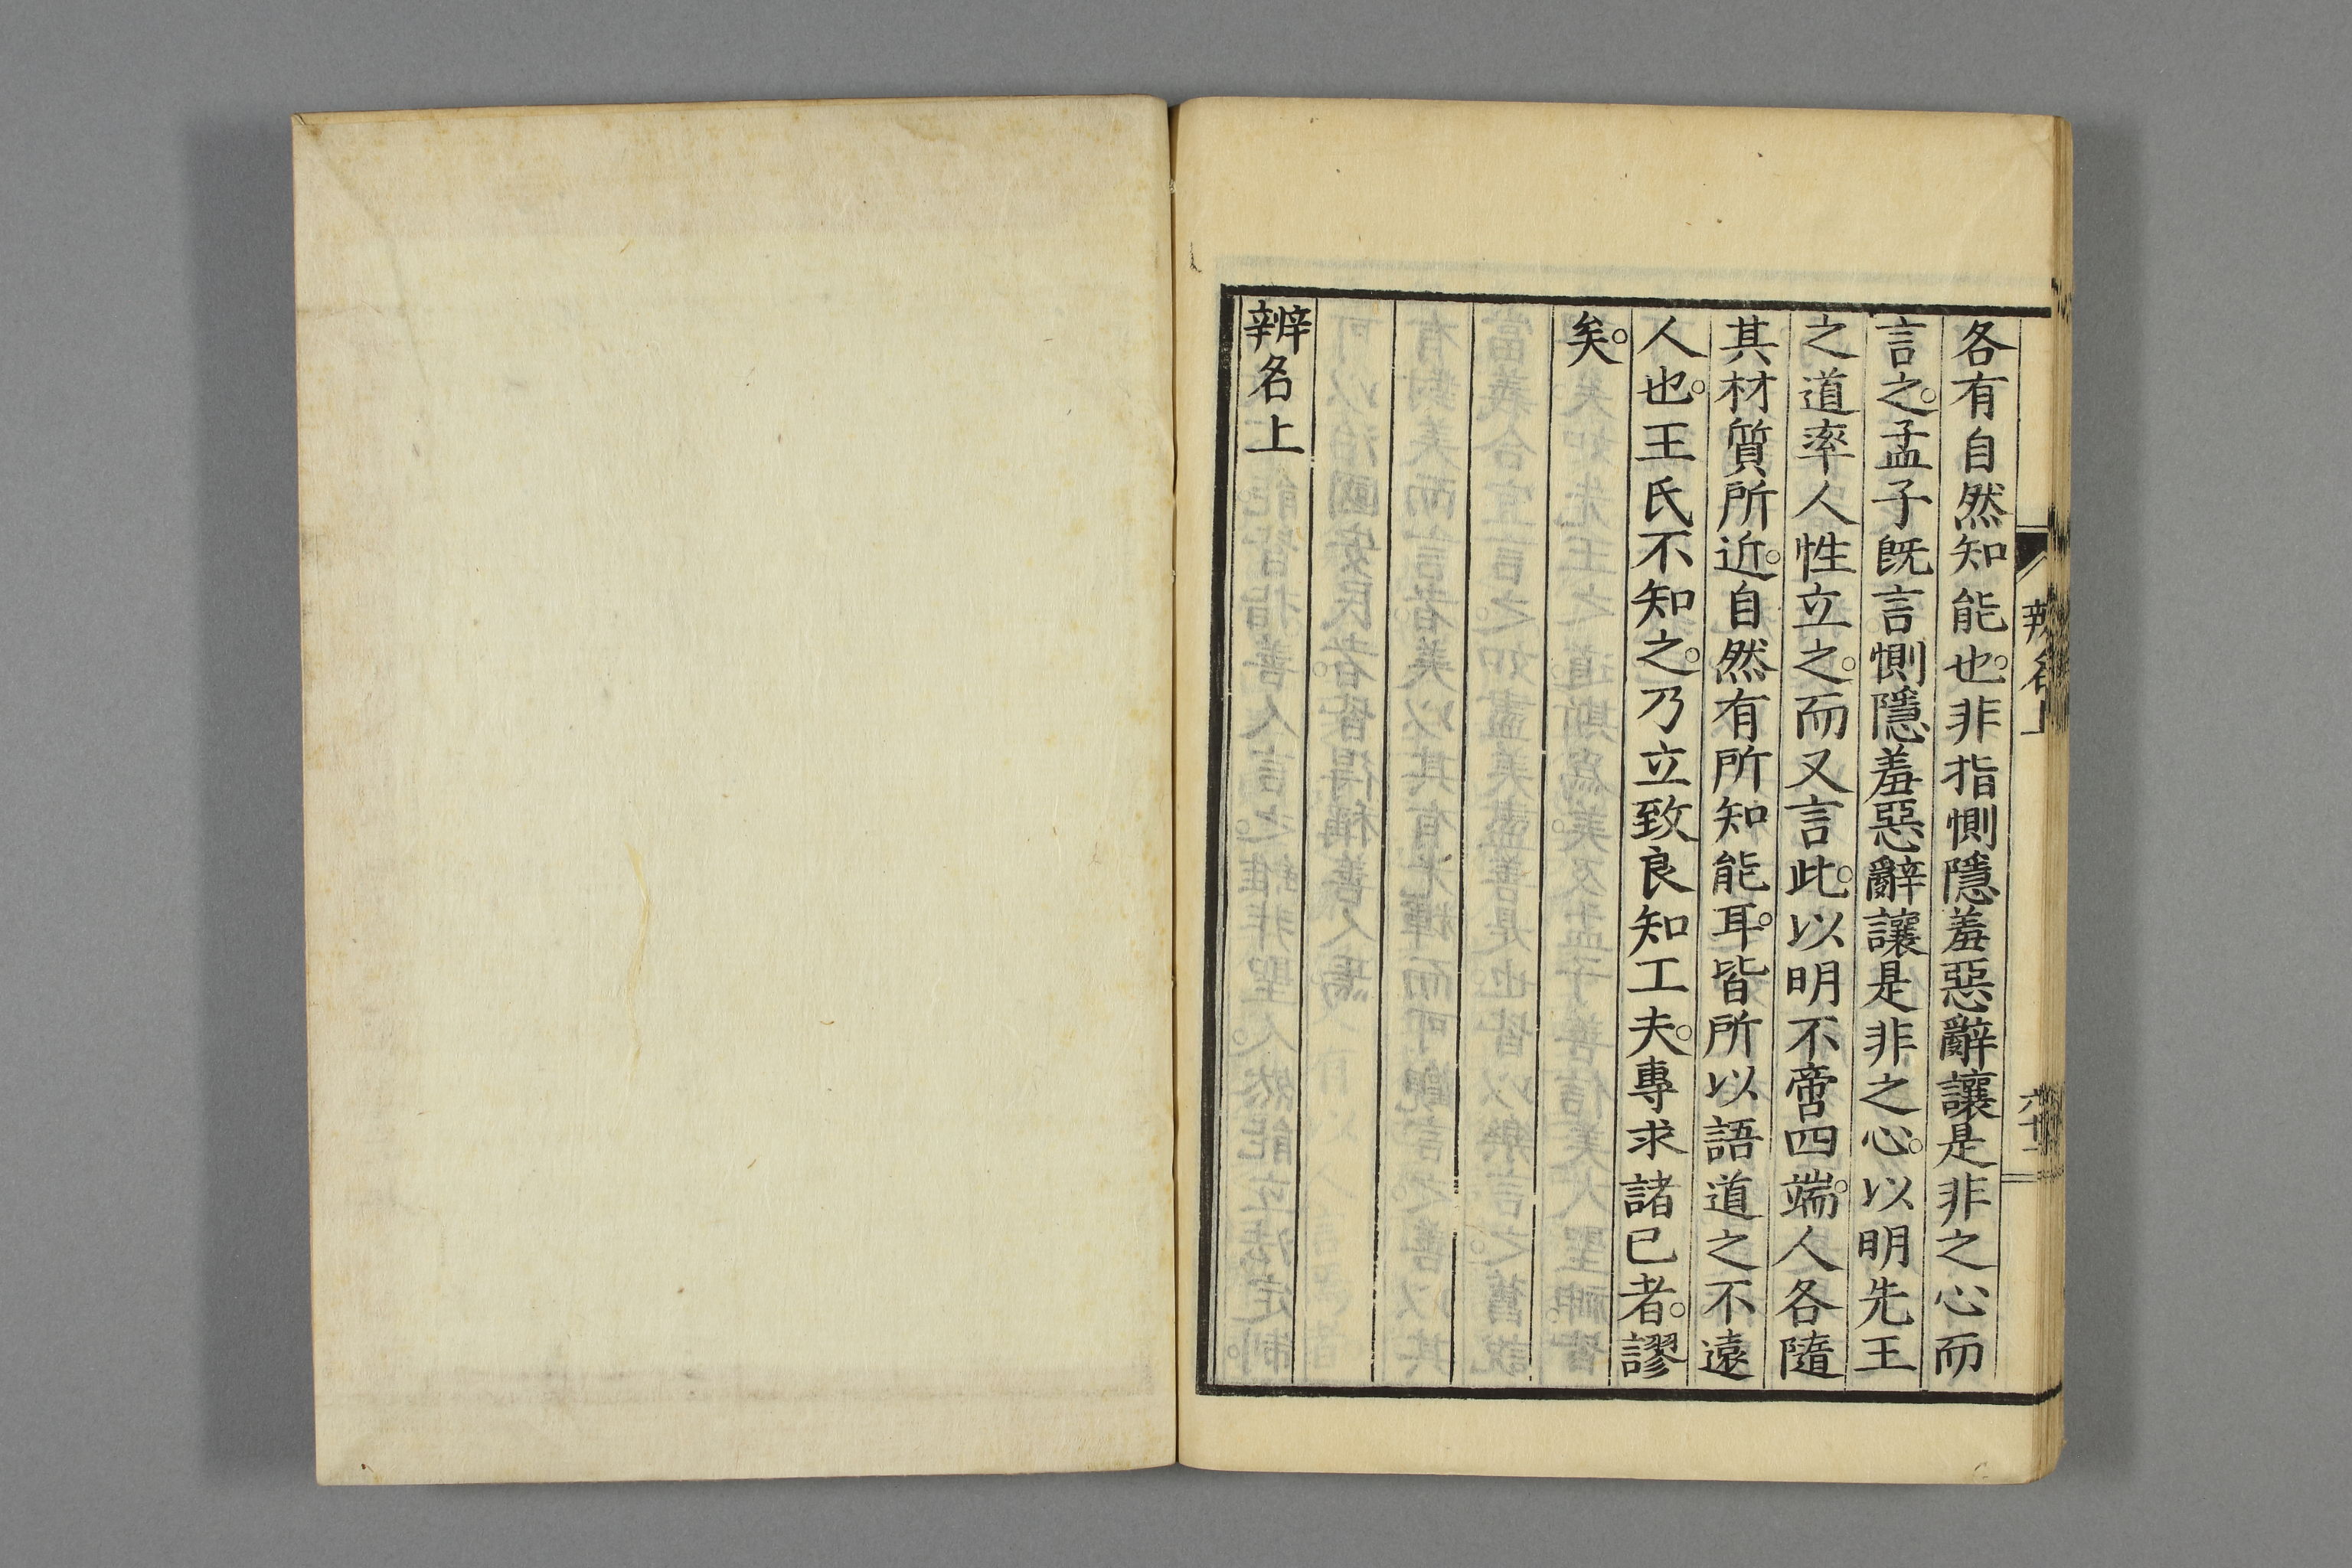 各有自然知能也。非指惻隱羞惡辭讓是非之心而
言之。孟子既言惻隱羞惡辭讓是非之心。以明先王
之道率人性立之。而又言此。以明不啻四端。人各隨
其材質所近。自然有所知能耳。皆所以語道之不遠
人也。王氏不知之。乃立致良知工夫。專求諸已者。謬
矣。
辨名上
辨名上
六十二